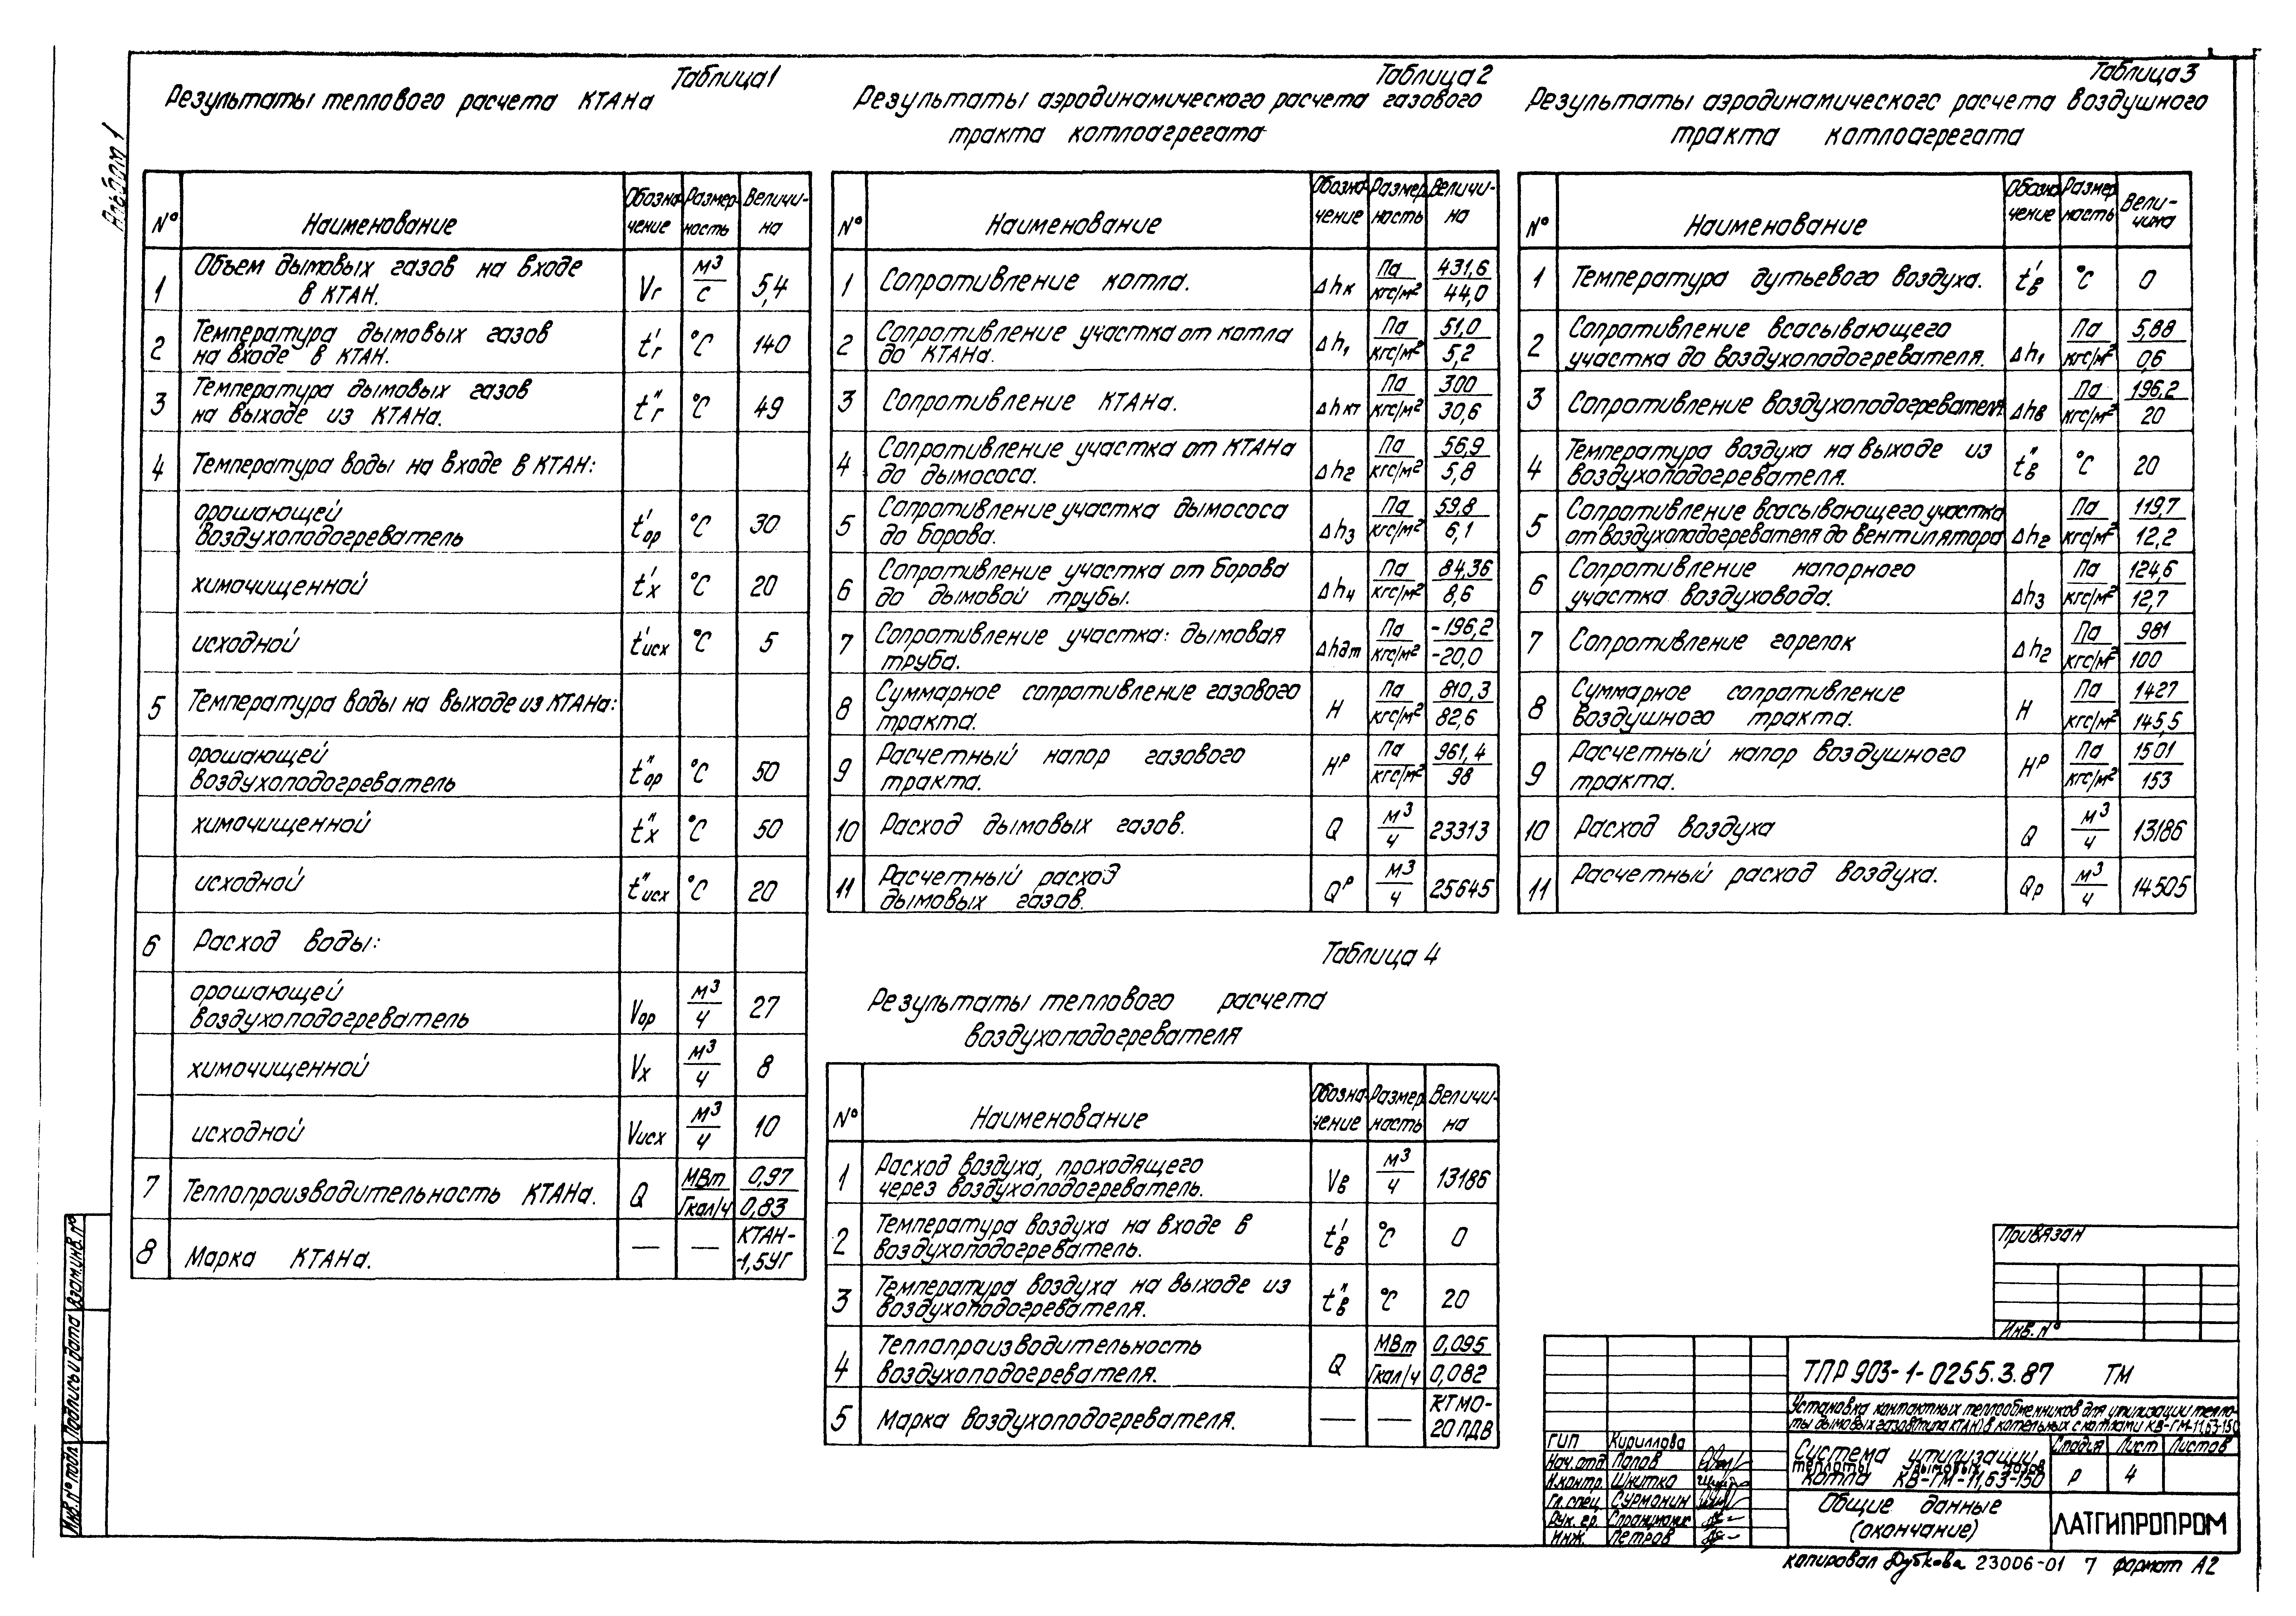 Альбом 1
Таблица 1
Результаты теплового расчета КТАНа
№ Наименование Обозна-чение Размер-ность Величи-на
1 Объем дымовых газов на входе
в КТАН. Vг м³/с 5,4
2 Температура дымовых газов
на входе в КТАН. t'г °C 140
3 Температура дымовых газов
на выходе из КТАНа. t"г °C 49
4 Температура воды на входе в КТАН:
орошающей
воздухоподогреватель t'ор °C 30
химочищенной t'х °C 20
исходной t'исх °C 5
5 Температура воды на выходе из КТАНа:
орошающей
воздухоподогреватель t"ор °C 50
химочищенной t"х °C 50
исходной t"исх °C 20
6 Расход воды:
орошающей
воздухоподогреватель Vор м³/ч 27
химочищенной Vх м³/ч 8
исходной Vисх м³/ч 10
7 Теплопроизводительность КТАНа. Q МВт/Гкал/ч 0,97/0,83
8 Марка КТАНа. — — КТАН-
-1,5УГ
Таблица 2
Результаты аэродинамического расчета газового
тракта котлоагрегата
№ Наименование Обозна-чение Размер-ность Величи-на
1 Сопротивление котла. Δhк Па/кгс/м² 431,6/44,0
2 Сопротивление участка от котла
до КТАНа. Δh₁ Па/кгс/м² 51,0/5,2
3 Сопротивление КТАНа. Δhкт Па/кгс/м² 300/30,6
4 Сопротивление участка от КТАНа
до дымососа. Δh₂ Па/кгс/м² 56,9/5,8
5 Сопротивление участка дымососа
до борова. Δh₃ Па/кгс/м² 59,8/6,1
6 Сопротивление участка от борова
до дымовой трубы. Δh₄ Па/кгс/м² 84,36/8,6
7 Сопротивление участка: дымовая
труба. Δhдт Па/кгс/м² -196,2/-20,0
8 Суммарное сопротивление газового
тракта. H Па/кгс/м² 810,3/82,6
9 Расчетный напор газового
тракта. Hᵖ Па/кгс/м² 961,4/98
10 Расход дымовых газов. Q м³/ч 23313
11 Расчетный расход
дымовых газов. Qᵖ м³/ч 25645
Таблица 3
Результаты аэродинамического расчета воздушного
тракта котлоагрегата
№ Наименование Обозна-чение Размер-ность Вели-чина
1 Температура дутьевого воздуха. t'в °C 0
2 Сопротивление всасывающего
участка до воздухоподогревателя. Δh₁ Па/кгс/м² 5,88/0,6
3 Сопротивление воздухоподогревателя. Δhв Па/кгс/м² 196,2/20
4 Температура воздуха на выходе из
воздухоподогревателя. t"в °C 20
5 Сопротивление всасывающего участка
от воздухоподогревателя до вентилятора Δh₂ Па/кгс/м² 119,7/12,2
6 Сопротивление напорного
участка воздуховода. Δh₃ Па/кгс/м² 124,6/12,7
7 Сопротивление горелок Δhг Па/кгс/м² 981/100
8 Суммарное сопротивление
воздушного тракта. H Па/кгс/м² 1427/145,5
9 Расчетный напор воздушного
тракта. Hᵖ Па/кгс/м² 1501/153
10 Расход воздуха Q м³/ч 13186
11 Расчетный расход воздуха. Qр м³/ч 14505
Таблица 4
Результаты теплового расчета
воздухоподогревателя
№ Наименование Обозна-чение Размер-ность Величи-на
1 Расход воздуха, проходящего
через воздухоподогреватель. Vв м³/ч 13186
2 Температура воздуха на входе в
воздухоподогреватель. t'в °C 0
3 Температура воздуха на выходе из
воздухоподогревателя. t"в °C 20
4 Теплопроизводительность
воздухоподогревателя. Q МВт/Гкал/ч 0,095/0,082
5 Марка воздухоподогревателя. — — КТМО-
20 ПДВ
Привязан
Инв. №
ТПР 903-1-0255.3.87 ТМ
Установка контактных теплообменников для утилизации тепло-
ты дымовых газов (типа КТАН) в котельных с котлами КВ-ГМ-11,63-150
ГИП Кириллова
Нач. отд. Попов
Н.контр. Шкитко
Гл. спец. Сурмонин
Рук. гр.
Инж. Петров
Система утилизации
теплоты дымовых газов
котла КВ-ГМ-11,63-150
Стадия Лист Листов
Р 4
Общие данные
(окончание)
ЛАТГИПРОПРОМ
Инв. № подл. Подпись и дата Взам.инв.№
копировал Дубкова 23006-01 7 формат А2